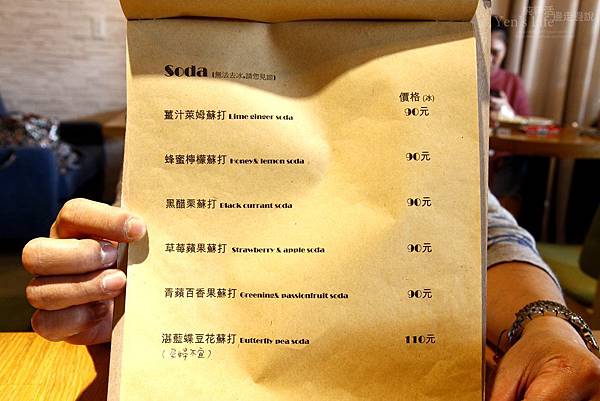 Yen's Life
Soda (無法去冰,請您見諒)
價格 (冰)
薑汁萊姆蘇打 Lime ginger soda 90元
蜂蜜檸檬蘇打 Honey& lemon soda 90元
黑醋栗蘇打 Black currant soda 90元
草莓蘋果蘇打 Strawberry & apple soda 90元
青蘋百香果蘇打 Greening& passionfruit soda 90元
湛藍蝶豆花蘇打 Butterfly pea soda 110元
(孕婦不宜)